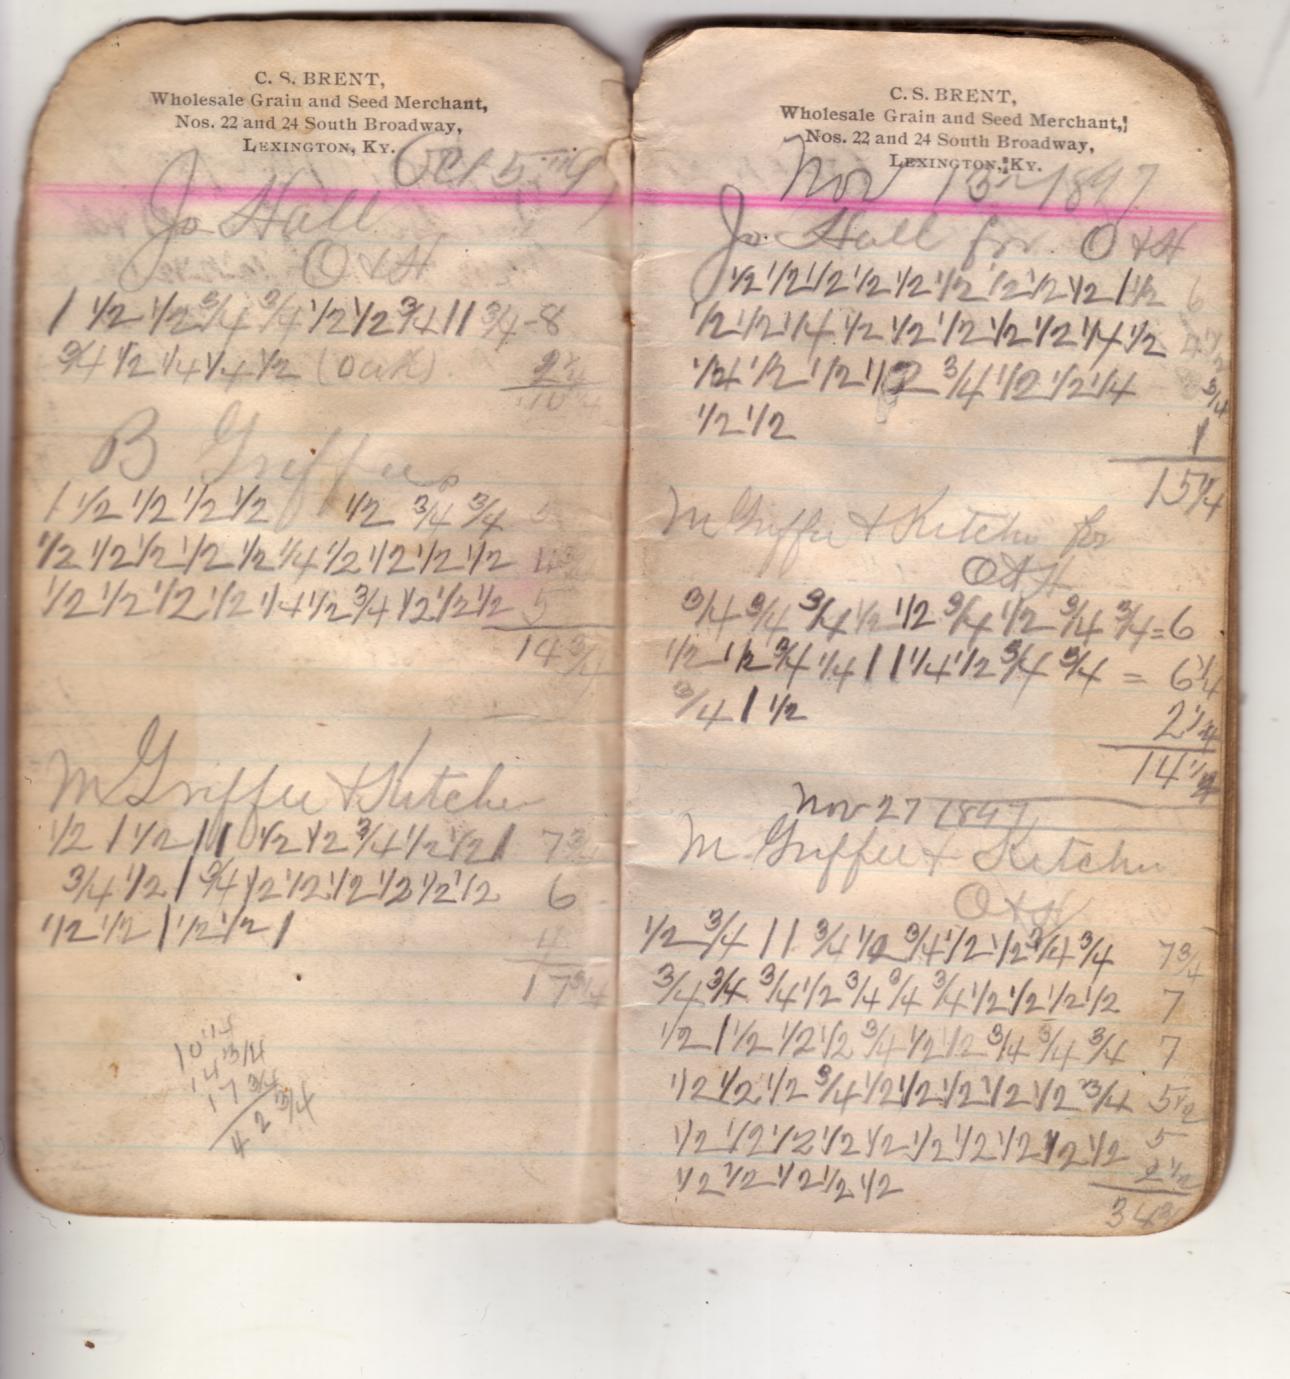 C. S. BRENT,
Wholesale Grain and Seed Merchant,
Nos. 22 and 24 South Broadway,
LEXINGTON, KY.
Oct 5
Jo Hall
O & H
1 1/2 1/2 3/4 3/4 1/2 1/2 3/4 1 1 3/4 - 8
3/4 1/2 1/4 1/4 1/2 (Oak) 2 1/4
10 1/4
B Griffee
1 1/2 1/2 1/2 1/2 1/2 3/4 3/4 5
1/2 1/2 1/2 1/2 1/2 1/4 1/2 1/2 1/2 1/2 4 3/4
1/2 1/2 1/2 1/2 1/4 1/2 3/4 1/2 1/2 1/2 5
14 3/4
M Griffee & Kitchen
1/2 1 1/2 1 1 1/2 1/2 3/4 1/2 1/2 1 7 3/4
3/4 1/2 1 3/4 1/2 1/2 1/2 1/2 1/2 1/2 6
1/2 1/2 1 1/2 1/2 1 4
17 3/4
10 1/4
14 3/4
17 3/4
42 3/4
C. S. BRENT,
Wholesale Grain and Seed Merchant,
Nos. 22 and 24 South Broadway,
LEXINGTON, KY.
Nov 13 1897
Jo. Hall for O & H
1/2 1/2 1/2 1/2 1/2 1/2 1/2 1/2 1/2 1 1/2 6
1/2 1/2 1/4 1/2 1/2 1/2 1/2 1/2 1/4 1/2 4 1/2
1/4 1/2 1/2 1/2 3/4 1/2 1/2 1/4 3/4
1/2 1/2 1
15 1/4
M Griffee & Kitchen for
O & H
3/4 3/4 3/4 1/2 1/2 3/4 1/2 3/4 3/4 = 6
1/2 1/2 3/4 1/4 1 1 1/4 1/2 3/4 3/4 = 6 1/4
3/4 1 1/2 2 1/4
14 1/2
Nov 27 1897
M Griffee & Kitchen
O & H
1/2 3/4 1 1 3/4 1/2 3/4 1/2 1/2 3/4 3/4 7 3/4
3/4 3/4 3/4 1/2 3/4 3/4 3/4 1/2 1/2 1/2 1/2 7
1/2 1 1/2 1/2 1/2 3/4 1/2 1/2 3/4 3/4 3/4 7
1/2 1/2 1/2 3/4 1/2 1/2 1/2 1/2 1/2 3/4 5 1/2
1/2 1/2 1/2 1/2 1/2 1/2 1/2 1/2 1/2 1/2 5
1/2 1/2 1/2 1/2 1/2 2 1/2
34 3/4